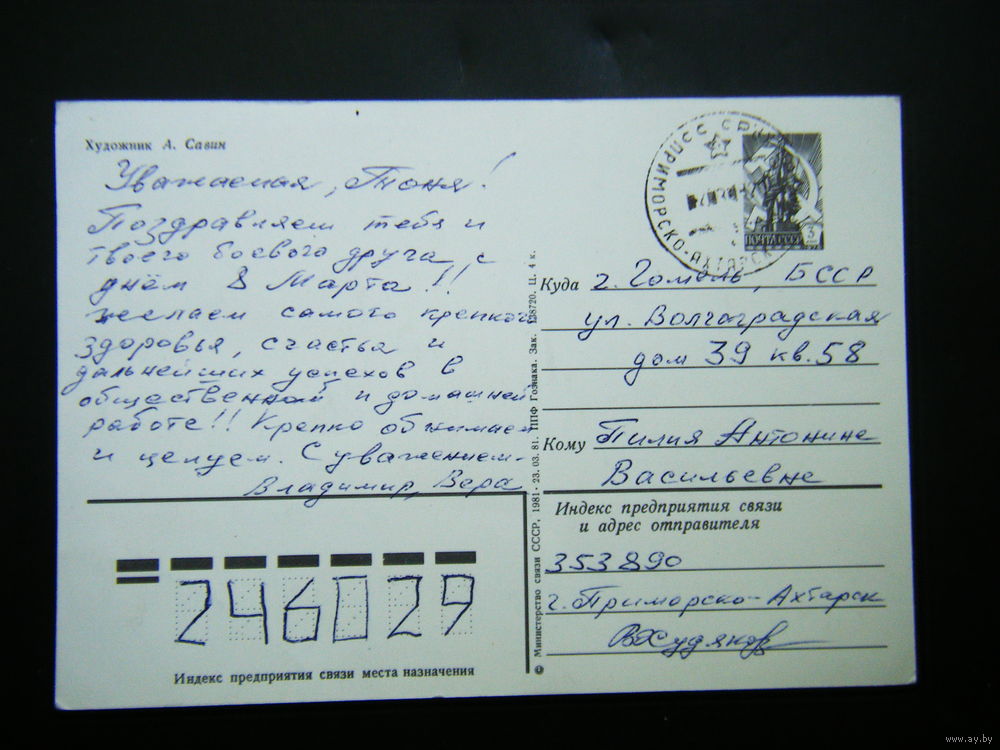 Художник А. Савин
Уважаемая, Тоня!
Поздравляем тебя и
твоего боевого друга с
днём 8 Марта!!
желаем самого крепкого
здоровья, счастья и
дальнейших успехов в
общественной и домашней
работе!! Крепко обнимаем
и целуем. С уважением-
Владимир, Вера
246029
Индекс предприятия связи места назначения
© Министерство связи СССР, 1981. 23. 03. 81. ППФ Гознака. Зак. 138720. Ц. 4 к.
СССР
ПРИМОРСКО-АХТАРСК
ПОЧТА СССР 3
Куда г. Гомель, БССР
ул. Волгоградская
дом 39 кв. 58
Кому Пилия Антонине
Васильевне
Индекс предприятия связи
и адрес отправителя
353890
г. Приморско-Ахтарск
www.ay.by